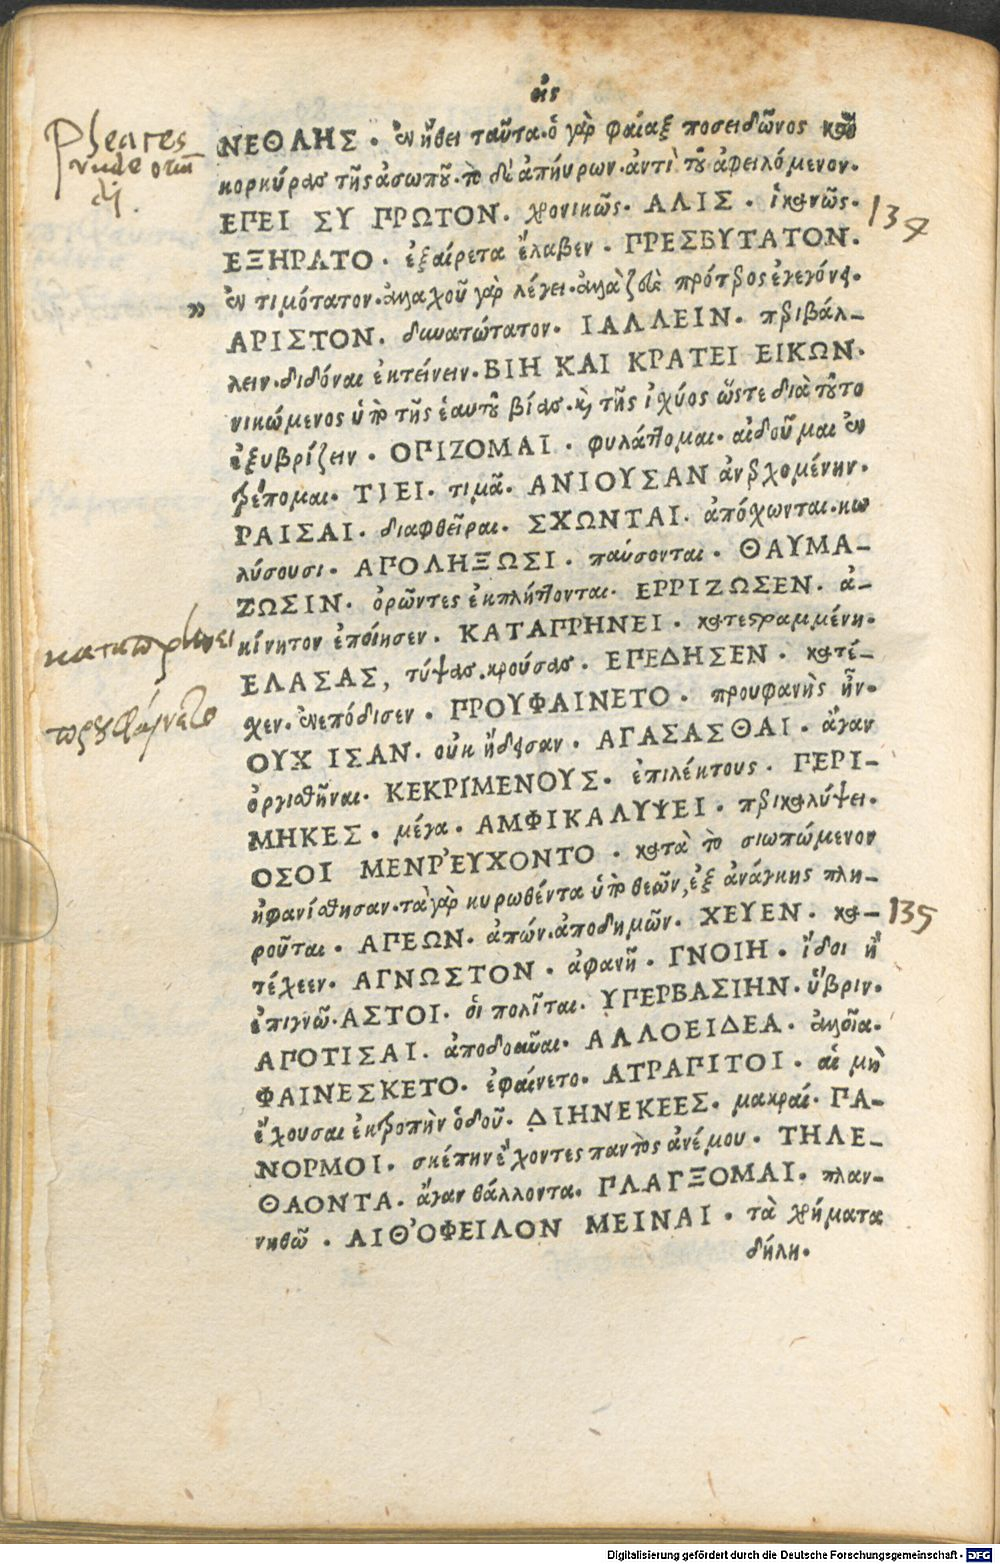 εἰς
Pheaces
unde oriun
ΝΕΘΛΗΣ. ἐν ἤθει ταῦτα. ὁ γὰρ φαίαξ ποσειδῶνος καὶ
κορκύρας τῆς ἀσωποῦ. τὸ δὲ ἀπηύρων. ἀντὶ τοῦ ἀφειλόμενον.
ΕΠΕΙ ΣΥ ΠΡΩΤΟΝ. χρονικῶς. ΑΛΙΣ. ἱκανῶς.
134
ΕΞΗΡΑΤΟ. ἐξαίρετα ἔλαβεν. ΠΡΕΣΒΥΤΑΤΟΝ.
„ ἐν τιμότατον. ἀλλαχοῦ γὰρ λέγει. ἀλλὰ ζεὺς πρότερος ἐγεγόνει.
ΑΡΙΣΤΟΝ. δυνατώτατον. ΙΑΛΛΕΙΝ. περιβάλ-
λειν. διδόναι ἐκτείνειν. ΒΙΗ ΚΑΙ ΚΡΑΤΕΙ ΕΙΚΩΝ.
νικώμενος ὑπὸ τῆς ἑαυτοῦ βίας. καὶ τῆς ἰχύος ὥστε διὰ τοῦτο
ἐξυβρίζειν. ΟΠΙΖΟΜΑΙ. φυλάττομαι. αἰδοῦμαι ἐν
τρέπομαι. ΤΙΕΙ. τιμᾶ. ΑΝΙΟΥΣΑΝ ἀνερχομένην.
ΡΑΙΣΑΙ. διαφθεῖραι. ΣΧΩΝΤΑΙ. ἀπόχωνται. κω
λύσουσι. ΑΠΟΛΗΞΩΣΙ. παύσονται. ΘΑΥΜΑ-
ΖΩΣΙΝ. ὁρῶντες ἐκπλήττονται. ΕΡΡΙΖΩΣΕΝ. ἀ-
κίνητον ἐποίησεν. ΚΑΤΑΠΡΗΝΕΙ. κατεστραμμένη.
καταπρηνει
ΕΛΑΣΑΣ, τύψας. κρούσας. ΕΠΕΔΗΣΕΝ. κατέ-
χεν. ἐνεπόδισεν. ΠΡΟΥΦΑΙΝΕΤΟ. προυφανὴς ἦν.
προυφαίνετο
ΟΥΧ ΙΣΑΝ. οὐκ ἤδεισαν. ΑΓΑΣΑΣΘΑΙ. ἄγαν
ὀργισθῆναι. ΚΕΚΡΙΜΕΝΟΥΣ. ἐπιλέκτους. ΠΕΡΙ-
ΜΗΚΕΣ. μέγα. ΑΜΦΙΚΑΛΥΨΕΙ. περικαλύψει.
ΟΣΟΙ ΜΕΝΡ'ΕΥΧΟΝΤΟ. κατὰ τὸ σιωπώμενον
ἠφανίσθησαν. τὰ γὰρ κυρωθέντα ὑπὸ θεῶν, ἐξ ἀνάγκης πλη-
ροῦται. ΑΠΕΩΝ. ἀπών. ἀποδημῶν. ΧΕΥΕΝ. κα-
135
τέχεεν. ΑΓΝΩΣΤΟΝ. ἀφανῆ. ΓΝΟΙΗ. ἴδοι ἢ
ἐπιγνῶ. ΑΣΤΟΙ. οἱ πολῖται. ΥΠΕΡΒΑΣΙΗΝ. ὕβριν.
ΑΠΟΤΙΣΑΙ. ἀποδοῦναι. ΑΛΛΟΕΙΔΕΑ. ἀλλοῖα.
ΦΑΙΝΕΣΚΕΤΟ. ἐφαίνετο. ΑΤΡΑΠΙΤΟΙ. αἱ μὴ
ἔχουσαι ἐκτροπὴν ὁδοῦ. ΔΙΗΝΕΚΕΕΣ. μακραί. ΠΑ-
ΝΟΡΜΟΙ. σκέπην ἔχοντες παντὸς ἀνέμου. ΤΗΛΕ-
ΘΑΟΝΤΑ. ἄγαν θάλλοντα. ΠΛΑΓΞΟΜΑΙ. πλαν-
νηθῶ. ΑΙΘ'ΟΦΕΙΛΟΝ ΜΕΙΝΑΙ. τὰ χρήματα
δήλη.
Digitalisierung gefördert durch die Deutsche Forschungsgemeinschaft - DFG